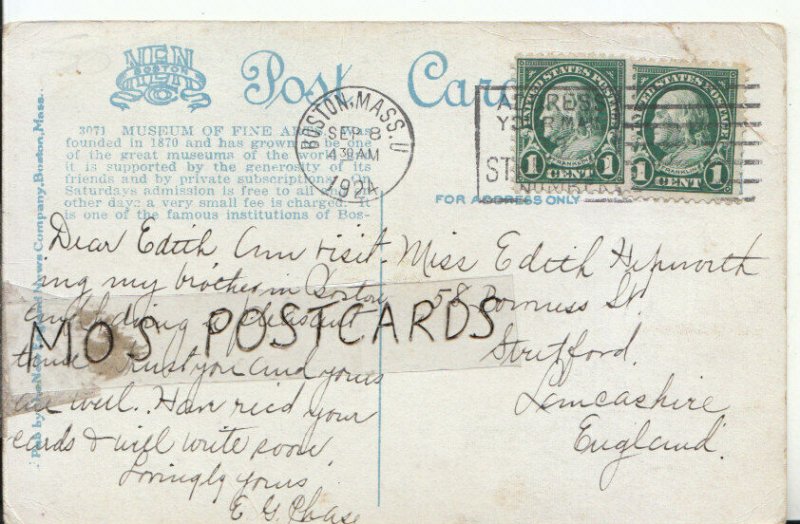 NEN
BOSTON
Post Card
3071 MUSEUM OF FINE
founded in 1870 and has grown be one
of the great museums of the world
it is supported by the generosity of its
friends and by private subscriptions. On
Saturdays admission is free to all
other days a very small fee is charged. It
is one of the famous institutions of Bos-
BOSTON, MASS. U
SEP 8
4 30 AM
192
ADDRESS
YOUR MAIL
ST
NUMBER
UNITED STATES POSTAGE
FRANKLIN
1 CENT 1
UNITED STATES POSTAGE
FRANKLIN
1 CENT 1
FOR ADDRESS ONLY
Pub by The New England News Company, Boston, Mass.
Dear Edith Am visit-
ing my brother in Boston
and doing a pleasant
time Trust you and yours
are well. Have rec'd your
cards & will write soon.
Lovingly yours
E G. Chase
Miss Edith Hepworth
58 Bowness St.
Stretford.
Lancashire
England.
MOS POSTCARDS